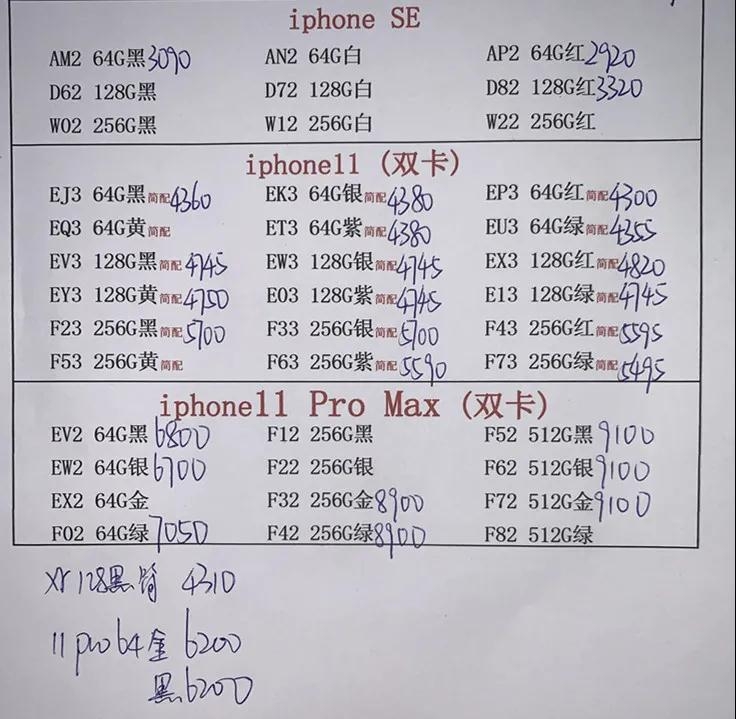 iphone SE
AM2 64G黑3090 AN2 64G白 AP2 64G红2920
D62 128G黑 D72 128G白 D82 128G红3320
W02 256G黑 W12 256G白 W22 256G红
iphone11 (双卡)
EJ3 64G黑简配4360 EK3 64G银简配4380 EP3 64G红简配4300
EQ3 64G黄简配 ET3 64G紫简配4380 EU3 64G绿简配4355
EV3 128G黑简配4745 EW3 128G银简配4745 EX3 128G红简配4820
EY3 128G黄简配4750 E03 128G紫简配4745 E13 128G绿简配4745
F23 256G黑简配5700 F33 256G银简配5700 F43 256G红简配5595
F53 256G黄简配 F63 256G紫简配5590 F73 256G绿简配5495
iphone11 Pro Max (双卡)
EV2 64G黑6800 F12 256G黑 F52 512G黑9100
EW2 64G银6700 F22 256G银 F62 512G银9100
EX2 64G金 F32 256G金8900 F72 512G金9100
F02 64G绿7050 F42 256G绿8900 F82 512G绿
xr 128黑简 4310
11 pro 64金 6200
黑6200